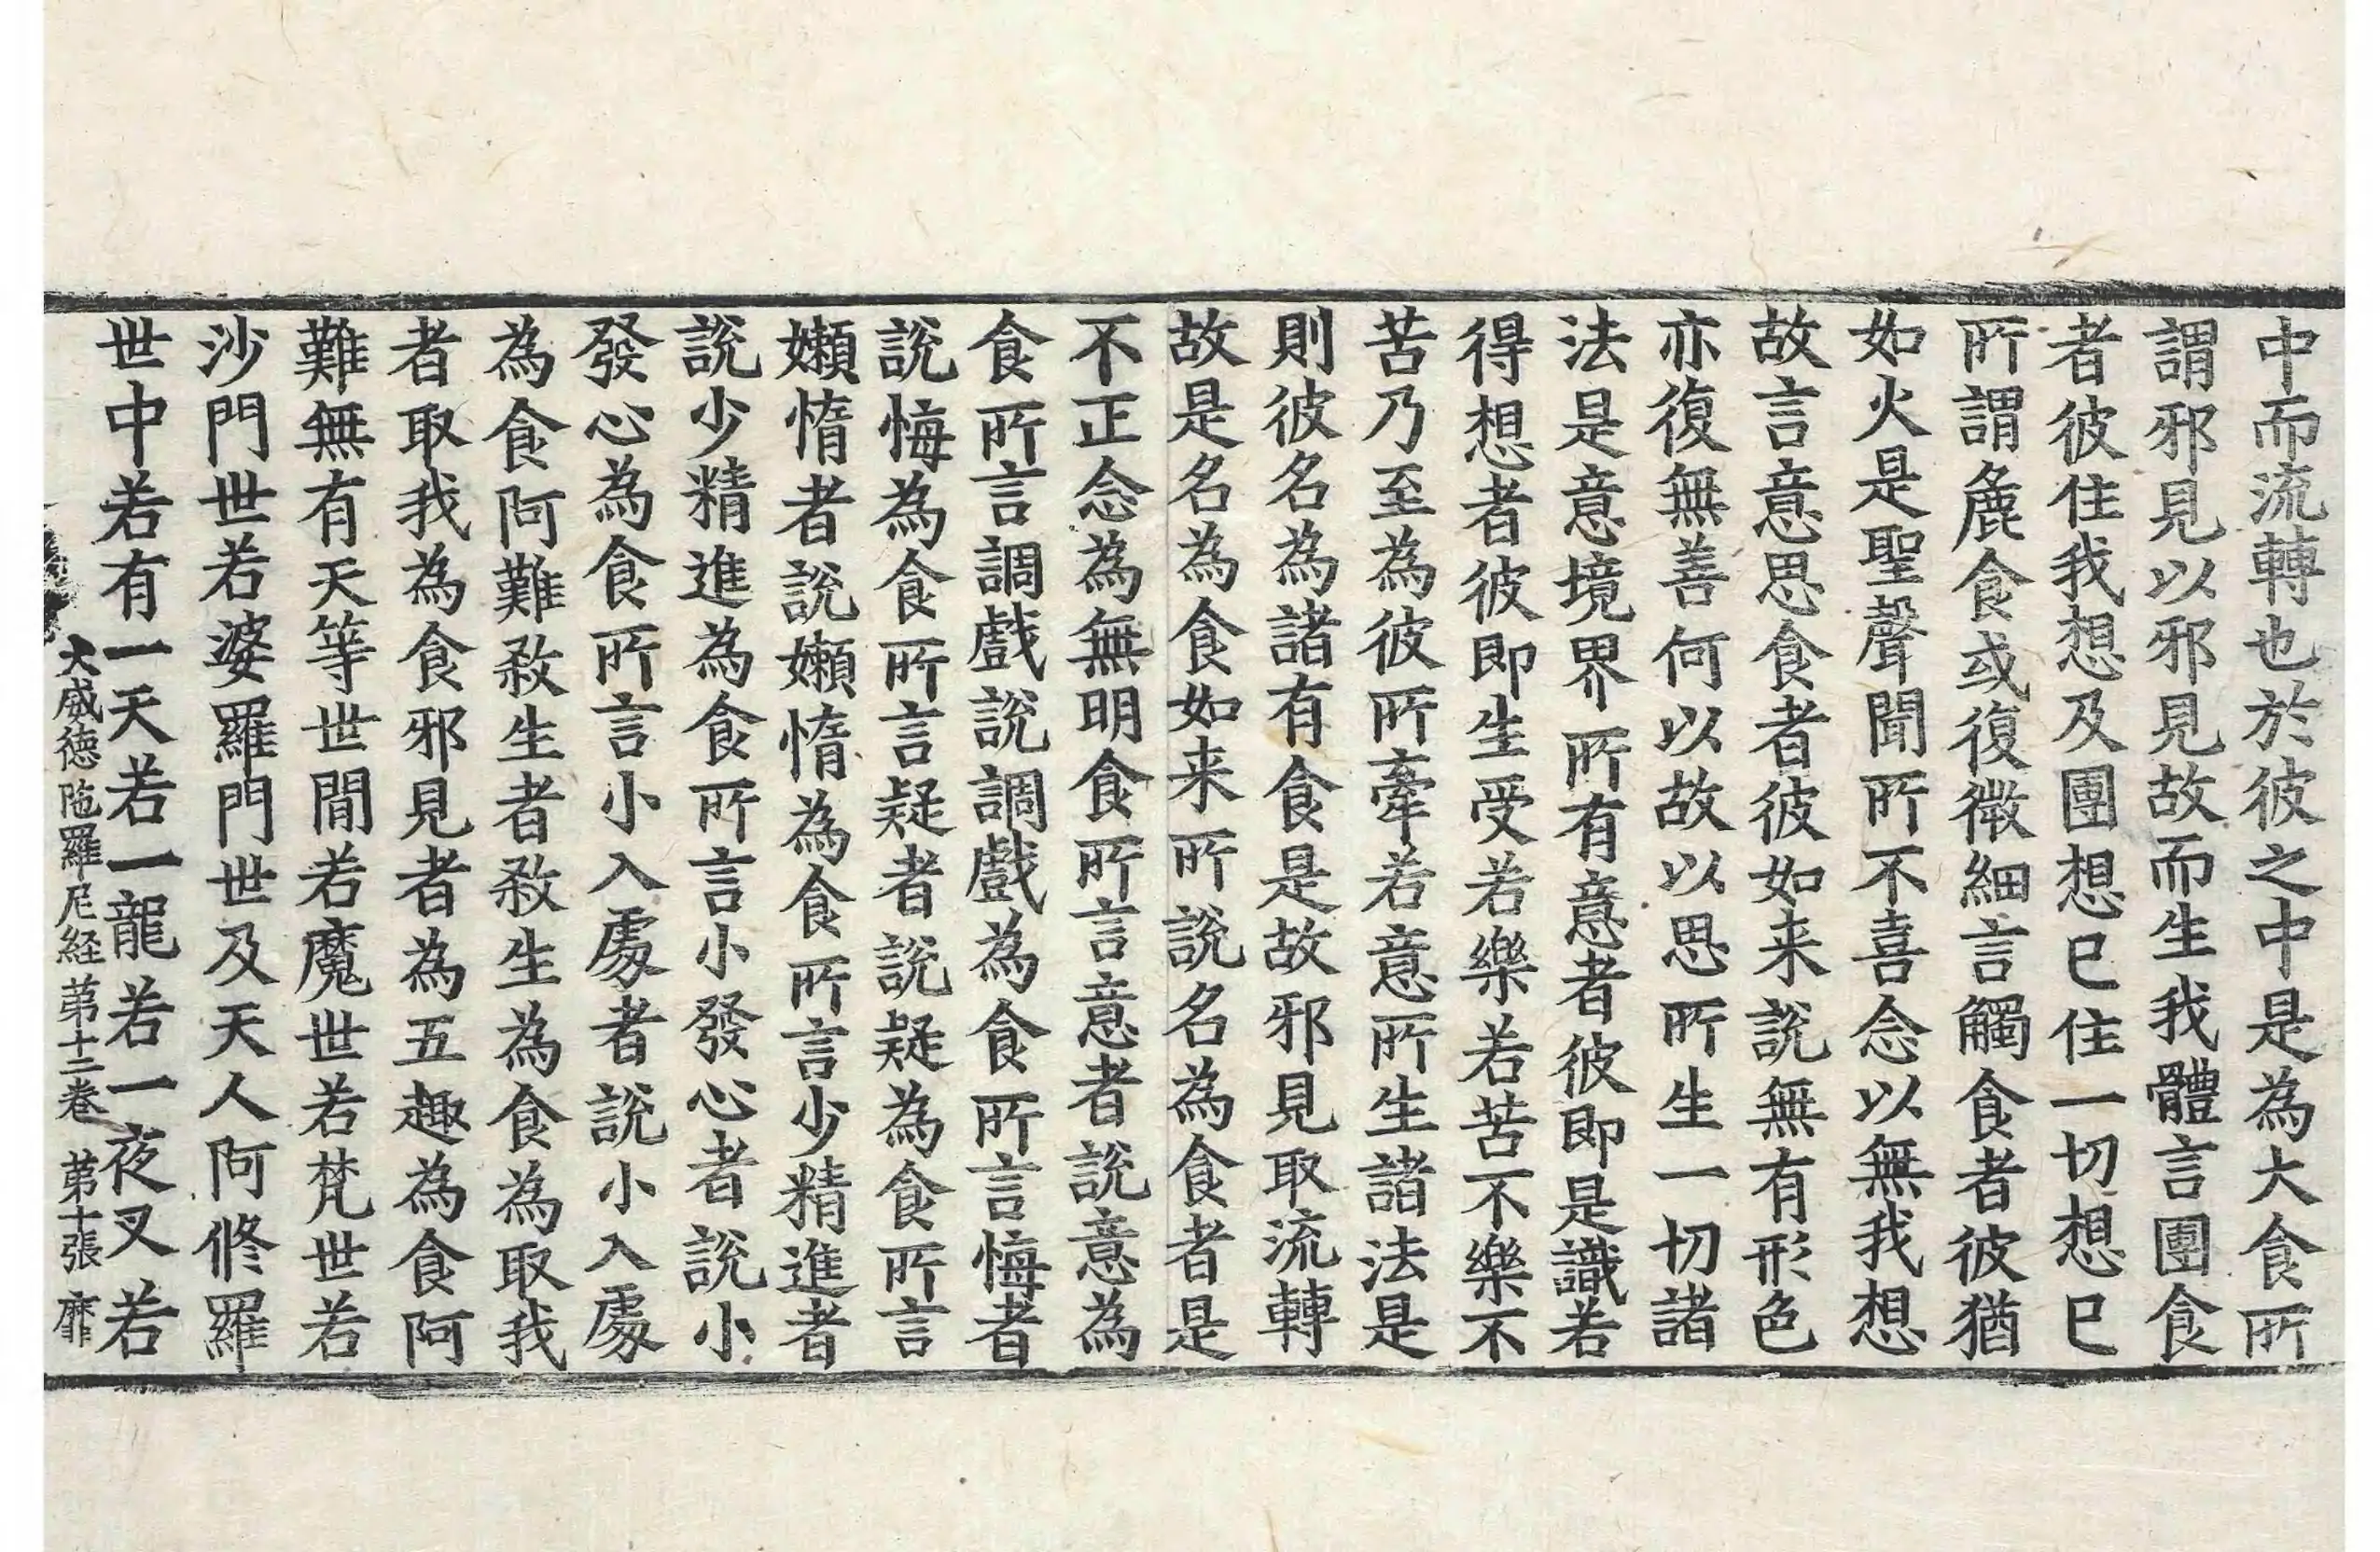 中而流轉也於彼之中是為大食所
謂邪見以邪見故而生我體言團食
者彼住我想及團想已住一切想已
所謂麁食或復微細言觸食者彼猶
如火是聖聲聞所不喜念以無我想
故言意思食者彼如来說無有形色
亦復無善何以故以思所生一切諸
法是意境界所有意者彼即是識若
得想者彼即生受若樂若苦不樂不
苦乃至為彼所牽若意所生諸法是
則彼名為諸有食是故邪見取流轉
故是名為食如来所說名為食者是
不正念為無明食所言意者說意為
食所言調戲說調戲為食所言悔者
說悔為食所言疑者說疑為食所言
嬾惰者說嬾惰為食所言少精進者
說少精進為食所言小發心者說小
發心為食所言小入處者說小入處
為食阿難敎生者敎生為食為取我
者取我為食邪見者為五趣為食阿
難無有天等世間若魔世若梵世若
沙門世若婆羅門世及天人阿修羅
世中若有一天若一龍若一夜叉若
大威徳陁羅尼経第十三卷 第十張 靡